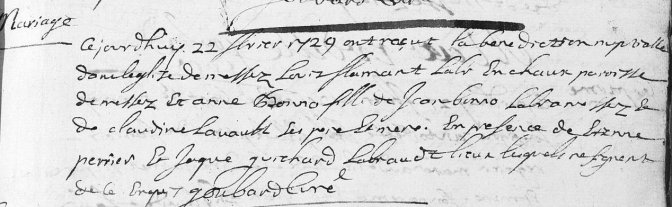 Mariage
Cejourdhuy 22 fevrier 1729 ont reçut la benediction nuptialle
dans leglize de Louis flamant Labr En chaux paroisse
de Et anne Bonno fille de Jean bonno Labr
de claudine Lavault ses pere Et mere. En presence de Etienne
perrier Et Jaque guichard Labr dudt lieux lesquels ne signent
de ce Enquis goubard Curé